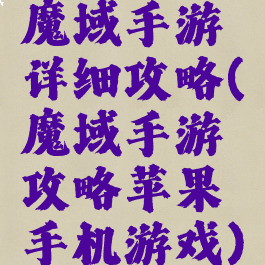 魔域手游
详细攻略(
魔域手游
攻略苹果
手机游戏)